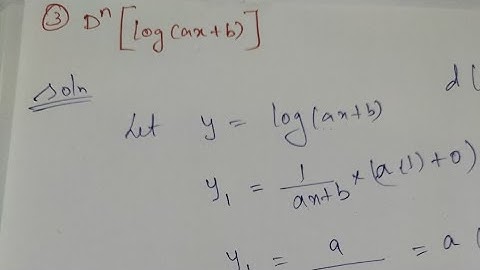 ③ Dⁿ [log(ax+b)]
Soln
Let y = log(ax+b)
d(
y₁ = 1/(ax+b) × (a(1)+0)
y₁ = a = a